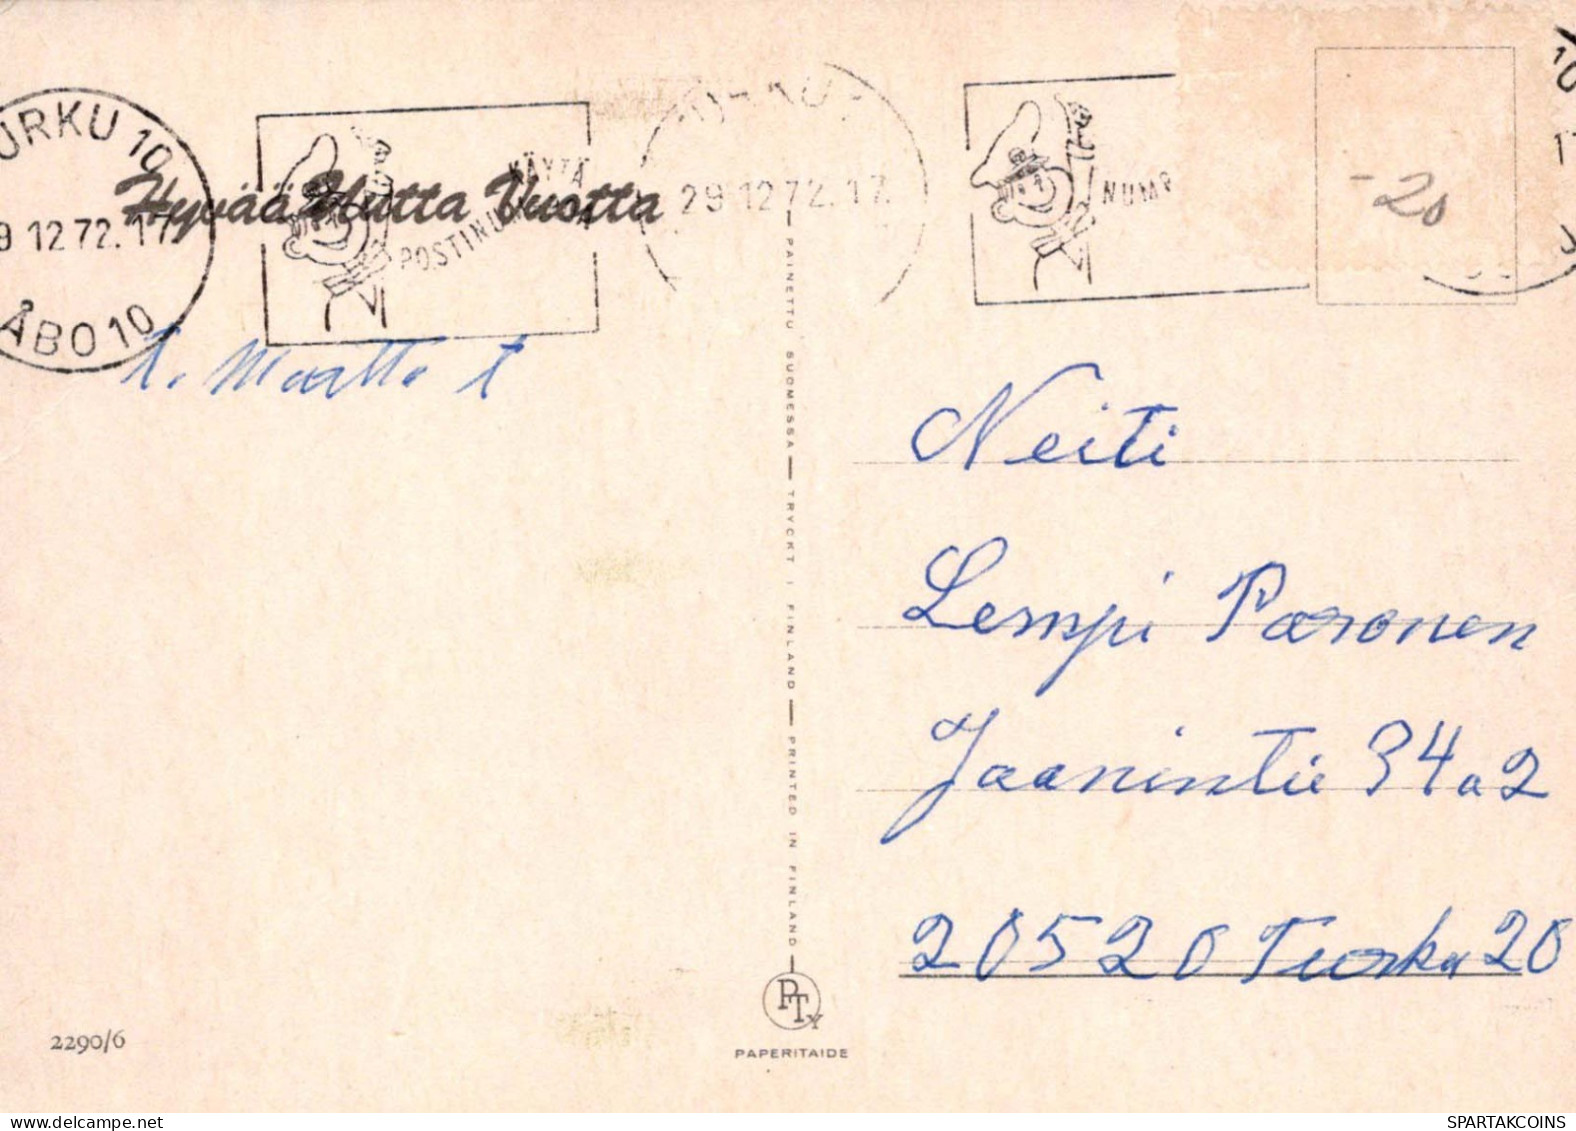 TURKU 10
29.12.72.17
ÅBO 10
KÄYTÄ
POSTINUMEROA
Hyvää Uutta Vuotta
29.12.72.17
NUME
-20
t. Martta t
Neiti
Lempi Paronen
Jaanintie 34 a 2
20520 Turku 20
PAINETTU SUOMESSA — TRYCKT I FINLAND — PRINTED IN FINLAND
PTy
PAPERITAIDE
2290/6
SPARTAKCOINS